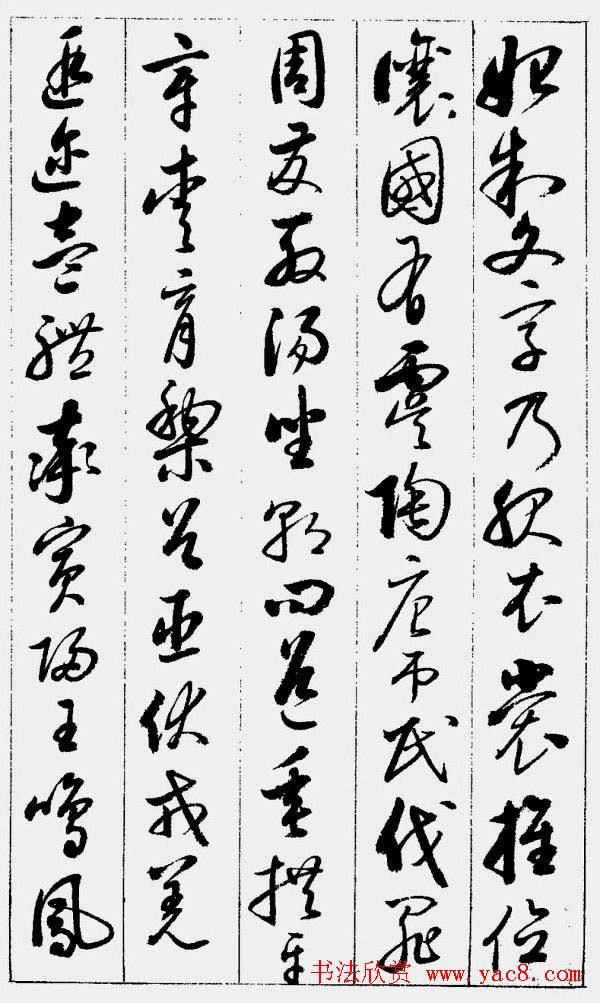 始制文字乃服衣裳推位
讓國有虞陶唐吊民伐罪
周發殷湯坐朝問道垂拱平
章愛育黎首臣伏戎羌
遐迩壹體率賓歸王鳴鳳
书法欣赏 www.yac8.com